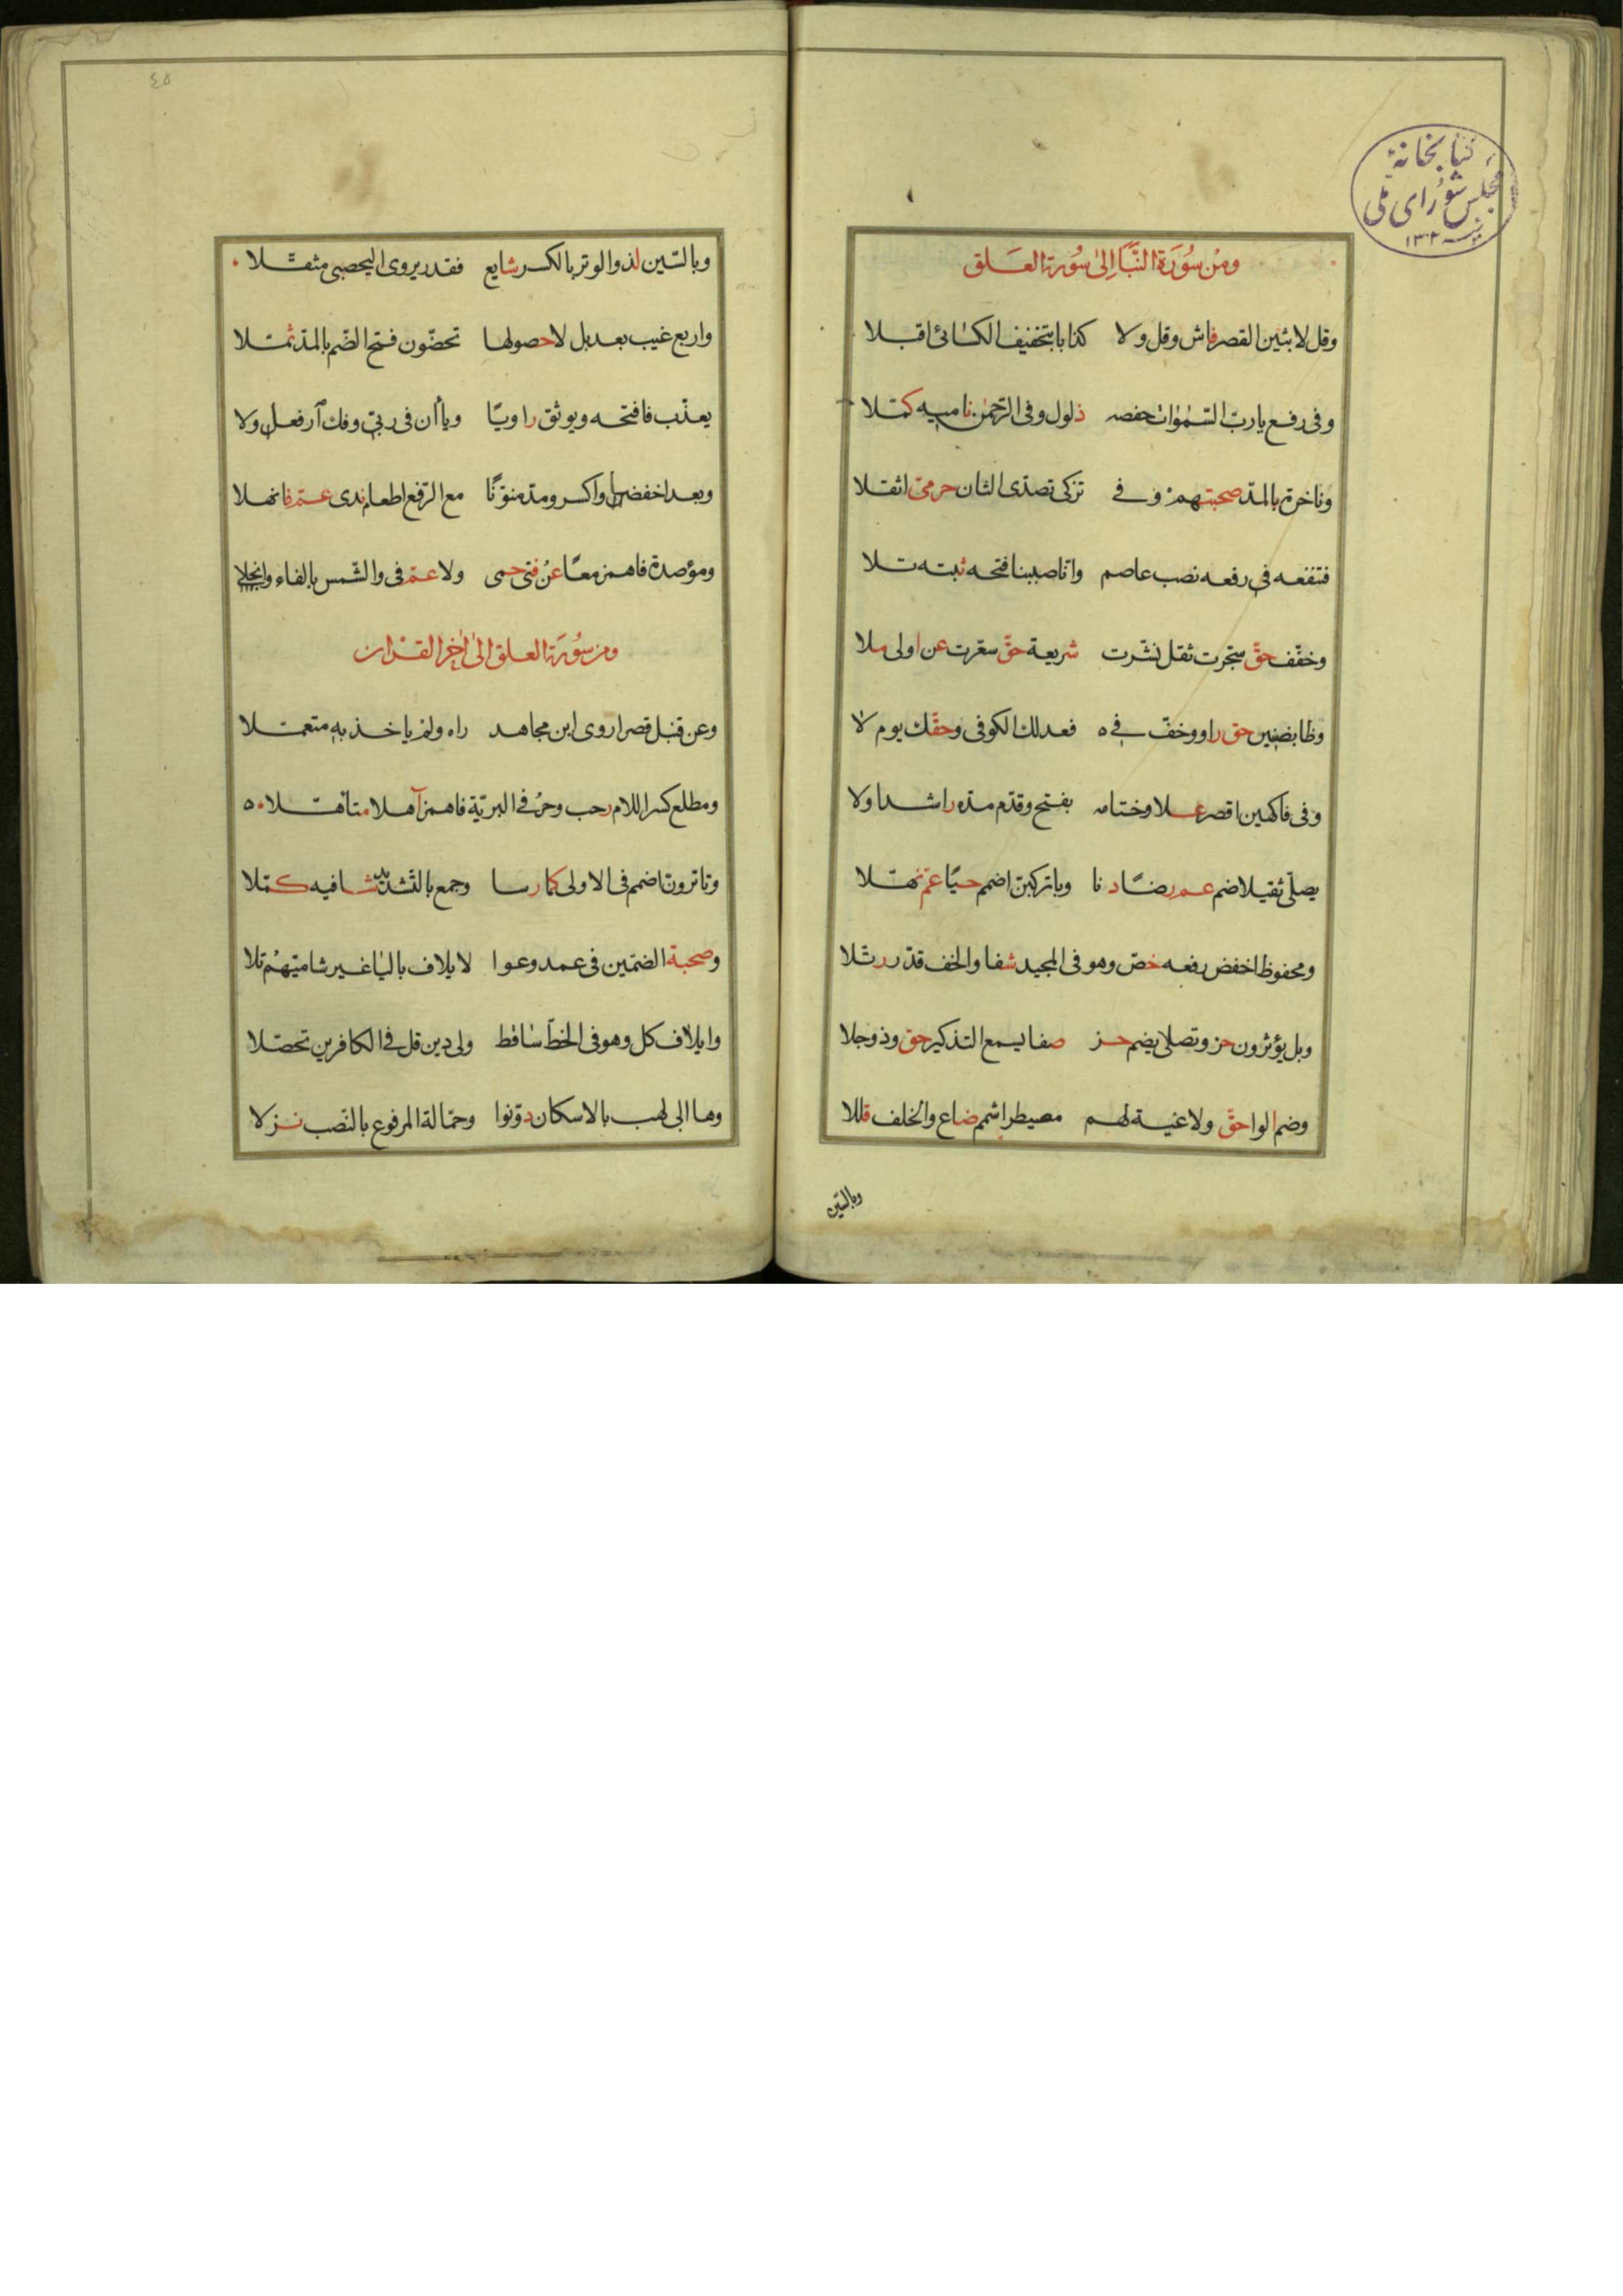 كتابخانهٔ
مجلس شورای ملی
سنه ۱۳۰۲
ومن سُورَة النَّبَأ اِلىٰ سُورة العَلق
وقل لابثين القصر فاش وقل ولا كذابا بتخفيف الكسائى اقبلا
وفى رفع يا ربّ السّمٰوات خفضه ذلول وفى الرّحمٰن ناميه كمّلا
وناخرة بالمدّ صحبتهم وفى تزكى تصدّى الثان حرمىّ اثقلا
فتنفعه فى رفعه نصب عاصم وانّا صببنا فتحه ثبته تلا
وخفّف حقّ سجّرت ثقل نشّرت شريعة حقّ سعّرت عن اولى ملا
وظا بضنين حق راو وخفّ فى ه فعدلك الكوفى وحقّك يوم لا
وفى فاكهين اقصر علا وختامه بفتح وقدّم مدّه راشدا ولا
يصلّى ثقيلا ضم عم رضًا دنا وبا تركبنّ اضمم حيًا عمّ نهّلا
ومحفوظ اخفض رفعه خصّ وهو فى المجيد شفا والخف قدّر رتّلا
وبل يؤثرون حز وتصلى يضم حز صفا يسمع التذكير حق وذو جلا
وضم الوا حقّ ولاغية لهم مصيطر اشمم ضاع والخلف قللا
وبالتين
٤٥
وبالسّين لذ والوتر بالكسر شايع فقدر يروى اليحصبى مثقّلا
واربع غيب بعد بل لا حصولها تحضّون فتح الضّم بالمدّ ثمّلا
يعذّب فافتحه ويوثق راويًا ويا أن فى ربىّ وفك ارفعن ولا
وبعد اخفضن واكسر ومدّ منوّنًا مع الرّفع اطعام ندى عمّ فانهلا
ومؤصدة فاهمز معًا عن فتى حمى ولا عمّ فى والشّمس بالفاء وانجلا
ومن سُورَة العلق الىٰ اٰخر القرْاٰن
وعن قنبل قصرا روى ابن مجاهد راه ولم ياخذ به متعمّلا
ومطلع كسر اللام رحب وحرفى البريّة فاهمز آهلا متأهّلا ٥
وتا ترونّ اضمم فى الاولى كما رسا وجمع بالتّشديد شافيه كمّلا
وصحبة الضمّين فى عمد وعوا لايلاف باليا غير شاميّهمْ تلا
وايلاف كل وهو فى الخطّ ساقط ولى دين قل فى الكافرين تحصّلا
وها ابى لهب بالاسكان دوّنوا وحمّالة المرفوع بالنّصب نزلا